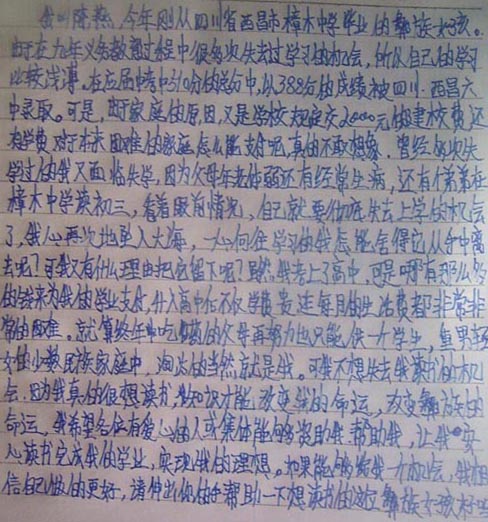 我叫陈燕,今年刚从四川省西昌市樟木中学毕业的彝族女孩。
由于在九年义务教育过程中很多次失去过学习的机会,所以自己的学习
比较浅薄。在应届中考中510分的总分中,以388分的成绩被四川西昌六
中录取。可是,由于家庭的原因,又是学校规定交2000元的建校费还
有学费对于本来困难的家庭怎么能支付呢,真的不敢想象。曾经多次失
学过的我又面临失学,因为父母年老体弱还有经常生病,还有个弟弟在
樟木中学读初三,看着眼前情况,自己就要彻底失去上学的机会
了,我心再次地坠入大海,一心向往学习的我怎能舍得它从手中离
去呢?可我又有什么理由把它留下呢?虽然我考上了高中,可是哪有那么多
的钱来为我的学业支付,升入高中后不仅学费贵连每月的生活费都非常非
常的困难。就算终年吃药的父母再努力也只能供一个学生,重男轻
女的少数民族家庭中,淘汰的当然就是我。可我不想失去我读书的机
会,因为我真的很想读书,知识才能改变我的命运,改变彝族的
命运。我希望各位有爱心的人或集体能够资助我、帮助我,让我安
心读书完成我的学业,实现我的理想。如果能够给我一个机会,我相
信自己做的更好,请伸出你的手帮助一个想读书的彝族女孩好吗